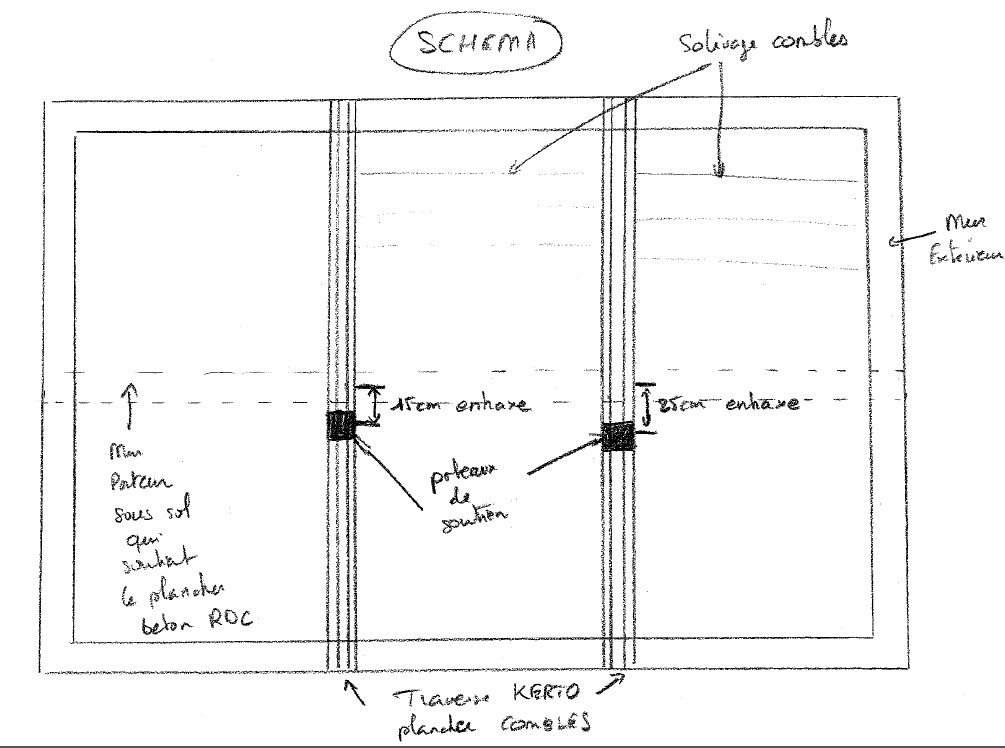 SCHEMA
Solivage combles
Mur
Extérieur
15cm entraxe
25cm entraxe
poteaux
de
soutien
Mur
Porteur
sous sol
qui
soutient
le plancher
beton RDC
Traverse KERTO
plancher COMBLES